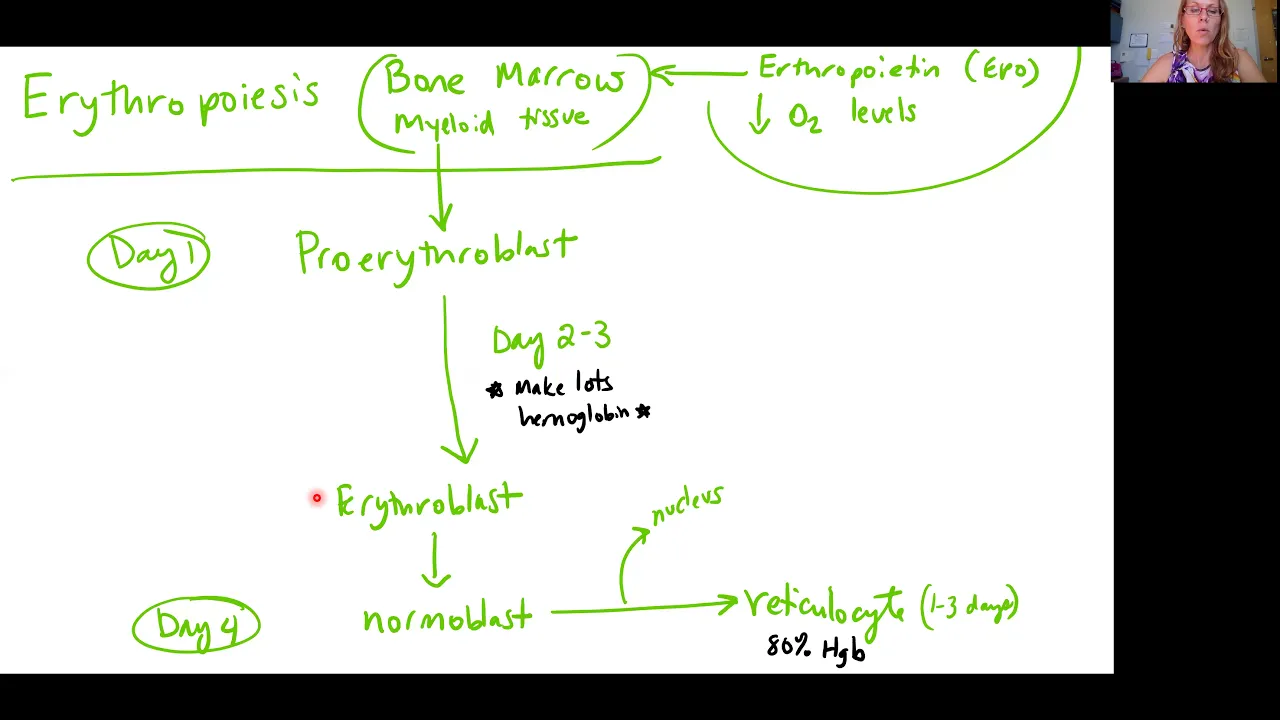 Erythropoiesis
Bone Marrow
Myeloid tissue
Erthropoietin (EPO)
↓ O2 levels
Day 1
Proerythroblast
Day 2-3
* Make lots
hemoglobin *
Erythroblast
nucleus
Day 4
normoblast
reticulocyte (1-3 days)
80% Hgb